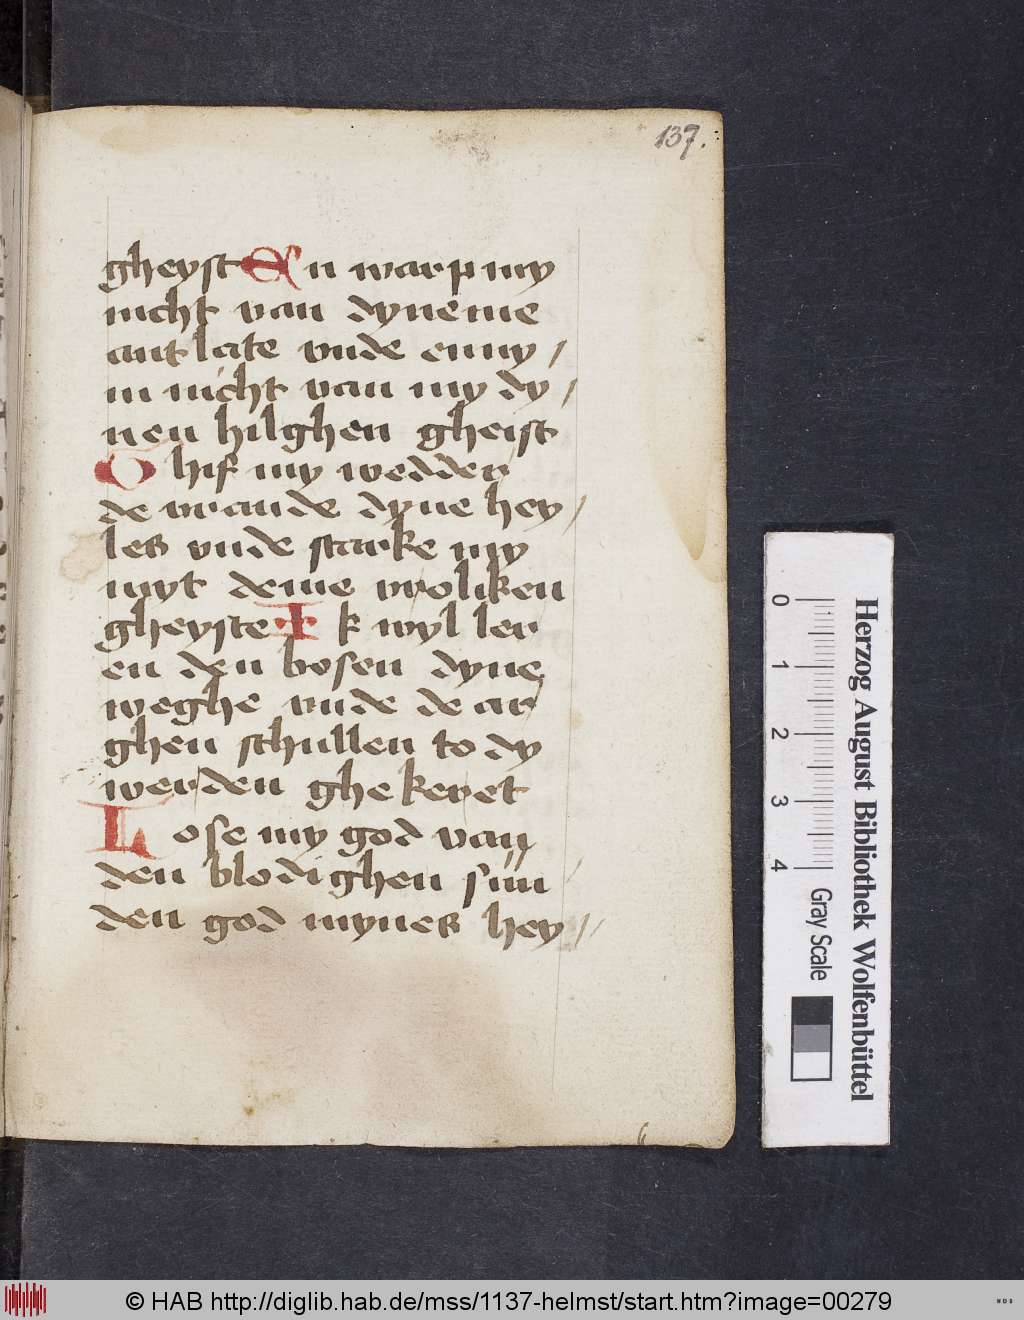 137.
gheyst En warp my
nicht van dyneme
antlate vnde enny/
m nicht van my dy/
nen hilghen gheist
Ghif my wedder
de vraude dyne hey/
les vnde starke my
myt deme wroliken
gheyste Ik wyl ler
en den bosen dyne
weghe vnde de ar
ghen schullen to dy
werden ghekeret
Lose my god van
den blodighen sun
den god mynes hey//
6
Herzog August Bibliothek Wolfenbüttel
0 1 2 3 4 Gray Scale
© HAB http://diglib.hab.de/mss/1137-helmst/start.htm?image=00279